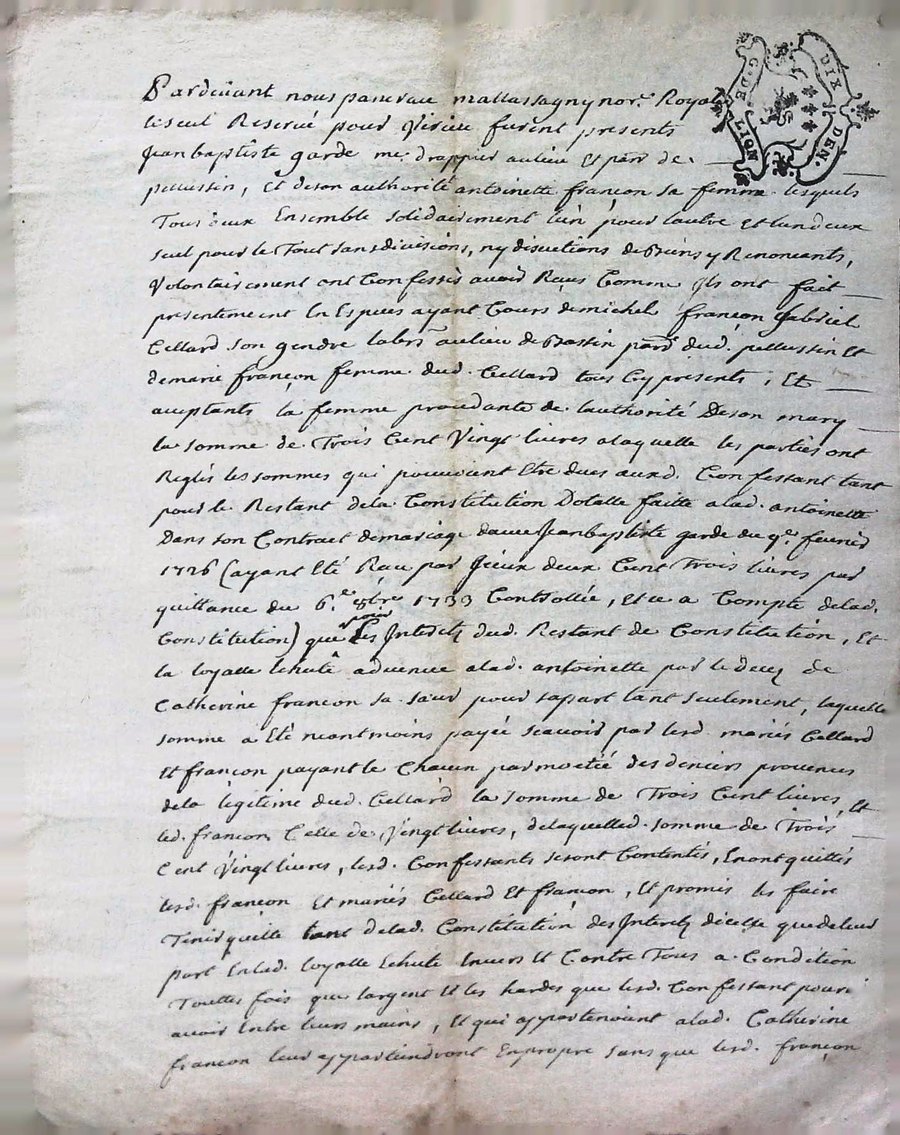 G. DE LION DIX DEN.
Pardevant nous pancrace mallassagny nor.e Royal
le seul Reservé pour Virieu furent presents
Jean baptiste garde me. drappier au lieu Et parr. de
pellussin, Et de son authorité antoinette françon sa femme lesquels
Tous deux Ensemble solidairement l'un pour lautre et lun deux
seul pour le Tout sans divisions, ny discutions de Biens y Renonceants,
Volontairement ont Confessés avoir Reçus Comme Ils ont fait
presentement En Especes ayant Cours de michel françon Gabriel
Cellard son gendre labr. au lieu de Bassin parr. dud. pellussin Et
de marie françon femme dud. Cellard tous Icy presents, Et
aceptants la femme procedante de lauthorité De son mary
la somme de Trois Cent Vingt livres a laquelle les parties ont
Reglés les sommes qui pouvoient Etre dues auxd. Confessant tant
pour le Restant de la Constitution Dotalle faitte a lad. antoinette
Dans son Contract de mariage avec Jean baptiste garde du 9.e fevrier
1726 (ayant Eté Recu par Iceux deux Cent Trois livres par
quittance du 6.e 8bre 1733 Controllée, Et ce a Compte de lad.
Constitution) que pour les Interets dud. Restant de Constitution, Et
la loyalle Echute advenue a lad. antoinette par le deces de
Catherine françon sa sœur pour sa part tant seulement, laquelle
somme a Eté neantmoins payée scavoir par lesd. mariés Cellard
Et françon payant le Chacun par moetié des deniers provenus
de la légitime dud. Cellard la somme de Trois Cent livres, Et
led. françon Celle de Vingt livres, de laquelle d. somme de Trois
Cent Vingt livres, lesd. Confessants seront Contentés, En ont quittés
lesd. françon Et mariés Cellard Et françon, Et promis les faire
Tenir quitte tant de lad. Constitution des Interets dicelle que de leur
part En lad. loyalle Echute Envers Et Contre Tous a Condition
Touttes fois que largent Et les hardes que lesd. Confessant peuvent
avoir Entre leurs mains, Et qui appartenoient a lad. Catherine
françon leur appartiendront En propre sans que lesd. françon